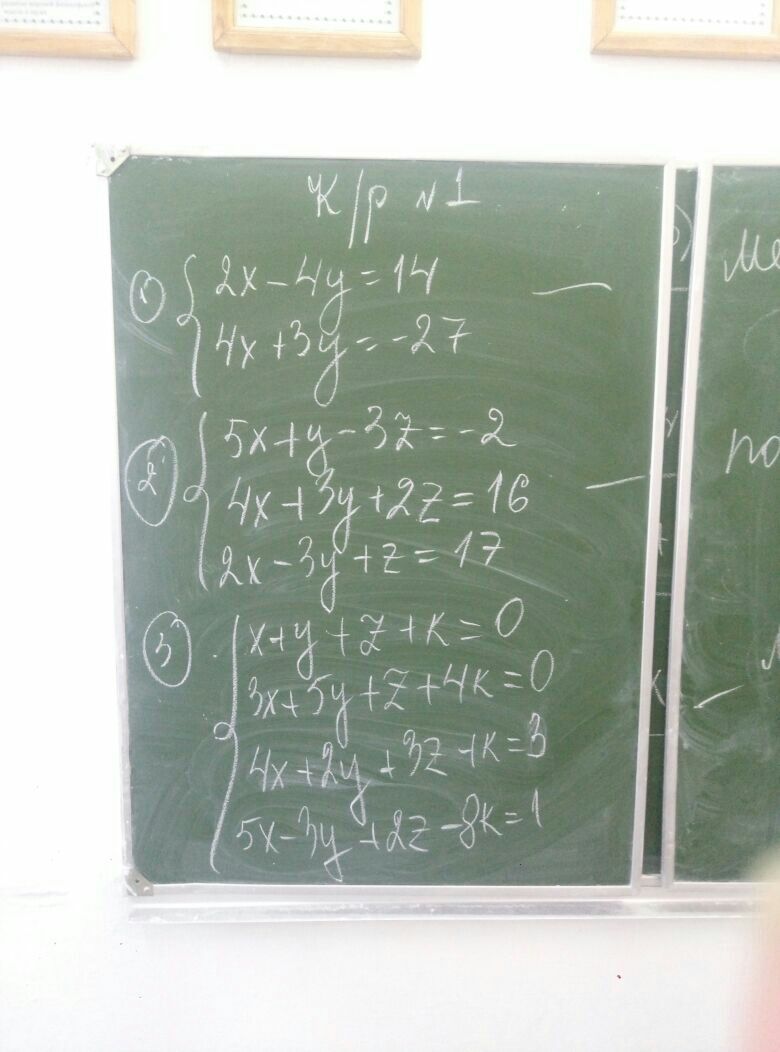 К/р №1
1) 2x-4y=14
4x+3y=-27
2) 5x+y-3z=-2
4x+3y+2z=16
2x-3y+z=17
3) x+y+z+k=0
3x+5y+z+4k=0
4x+2y+3z+k=3
5x-3y+2z-8k=1
Ме
по